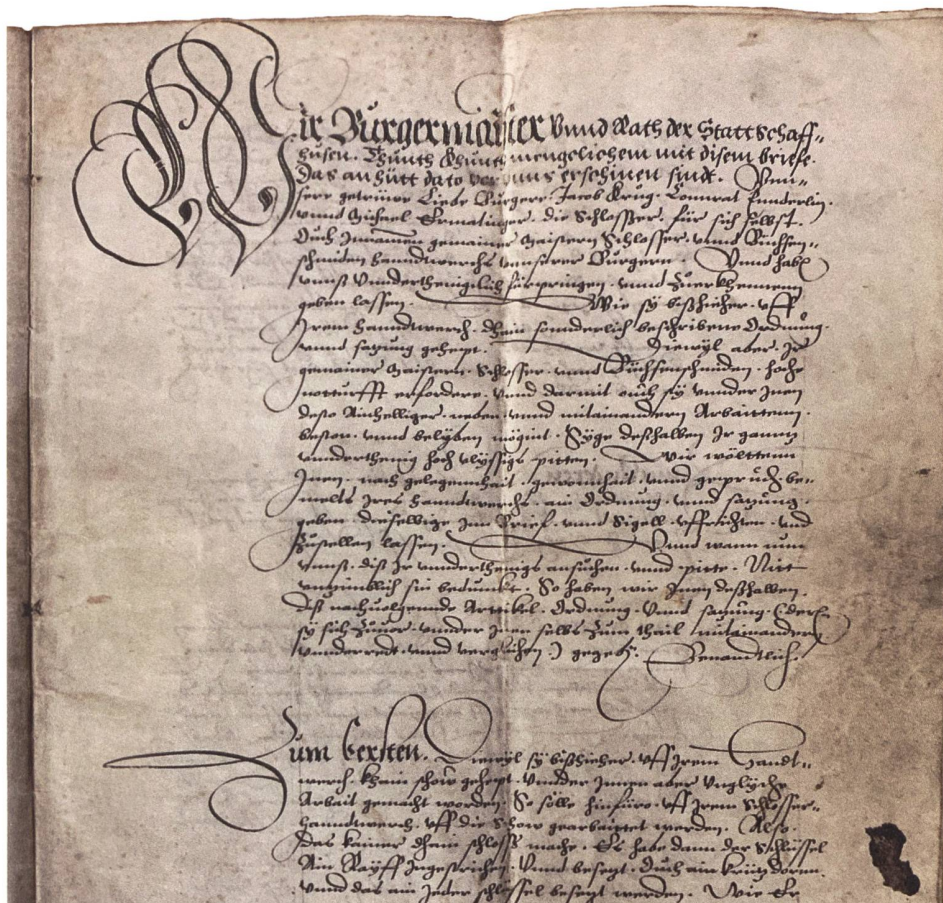 Wir Burgermaister Vnnd Rath der Statt Schaff-
husen. Thunth Khundt mengclichem mit disem briefe.
Das an hütt dato vor vnns erschinen sindt. Vnn-
sere getrüwe Liebe Burgere. Jacob Krug. Conrat
vnnd Michael Ermatinger. die Schlosser. für sich selbst.
Ouch Innamen gemainer Maistern Schlosser. vnnd Büchsen-
schmiden hanndtwerchs vnnserer Burgern. Vnnd habe
vnnß Vnnderthenigclich fürpringen. vnnd Zuerkhennenn
geben lassen. Wie sy bißhieher. vff
Irem hanndtwerch. dhein sonnderlich beschribene Ordnung.
vnnd sazung gehept. Diewyl aber. Ir
gemainer Maistern. Schlosser. vnnd Büchsenschmiden. hoche
notturfft erfordere. vnnd darmit ouch sy vnnder Inen
dest Ainhelliger. neben. vnnd mitainandern Arbaittenn.
beston. vnnd belyben mögint. Syge deßhalben Ir gannz
vnnderthenig hoch vlyssigs pitten. Wir wölttenn
Inen. nach gelegennhait. gewonnhait. vnnd gepruch. be-
melts Ires hanndtwerchs. ain Ordnung. vnnd sazung.
geben. dieselbige Inn Brief. vnnd Sigell. vffrichten. vnd
Zustellen lassen. Vnnd wann nun
vnnß. diß Ir vnnderthenigs ansuchen. vnnd pitte. Nitt
vnzimblich sin bedunkt. So haben wir Inen deßhalben.
diß nachuolgennde Arttikel. Ordnung. Vnnd sazung. (deren
sy sich Zuuor. vnnder Inen selbs Zum theil mitainandern
vnnderredt. vnnd verglichen.) gegeben. Benandtlich.
Zum Ersten. Diewyl sy bißhieher. vff Irem Handt-
werch. khain schow gehept. vnnder Innen aber vnglyche
Arbait gemacht worden. So sölle hinfüro. vff Irem Schlosser-
hanndtwerch. vff die Schow gearbaittet werden. Also.
Das kainer dhein schloss mache. Es habe dann der Schlüssel
Ain Rayff Ingestrichen. Vnnd besezt. Ouch ain krüz dorinn.
vnnd das ain Jeder schlüssel besezt werden. Wie Er